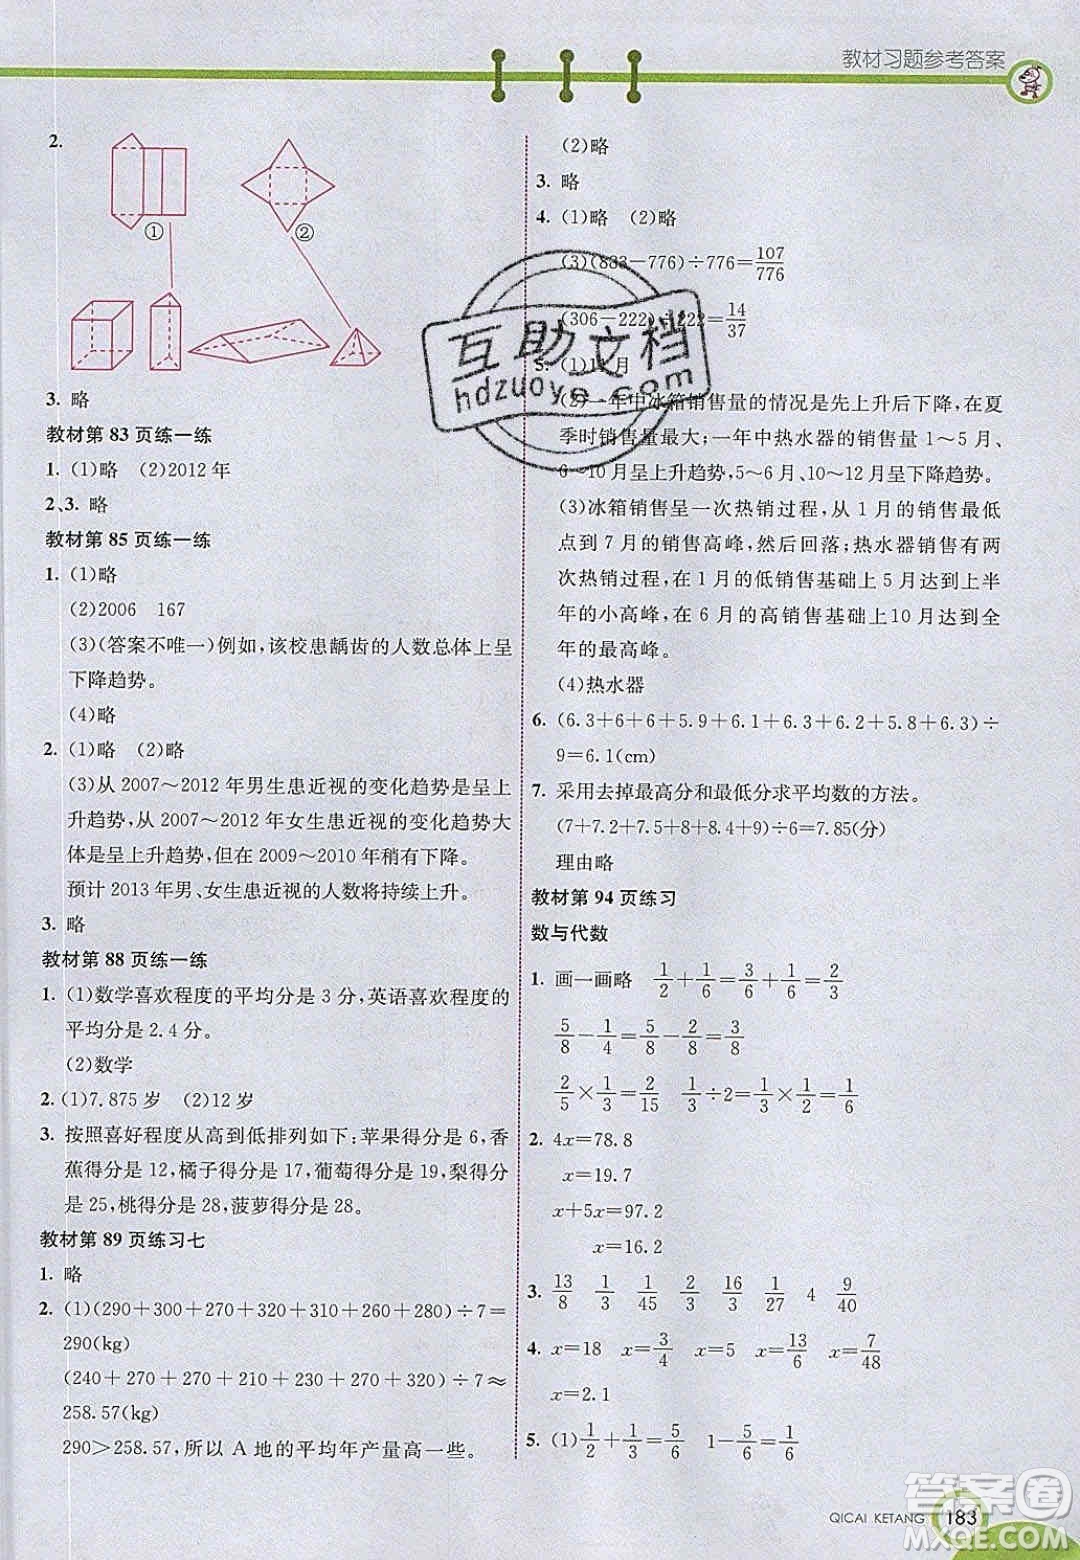 教材习题参考答案
2.
① ②
3. 略
教材第 83 页练一练
1. (1)略 (2)2012 年
2、3. 略
教材第 85 页练一练
1. (1)略
(2)2006 167
(3)(答案不唯一)例如,该校患龋齿的人数总体上呈
下降趋势。
(4)略
2. (1)略 (2)略
(3)从 2007～2012 年男生患近视的变化趋势是呈上
升趋势,从 2007～2012 年女生患近视的变化趋势大
体是呈上升趋势,但在 2009～2010 年稍有下降。
预计 2013 年男、女生患近视的人数将持续上升。
3. 略
教材第 88 页练一练
1. (1)数学喜欢程度的平均分是 3 分,英语喜欢程度的
平均分是 2.4 分。
(2)数学
2. (1)7.875 岁 (2)12 岁
3. 按照喜好程度从高到低排列如下:苹果得分是 6,香
蕉得分是 12,橘子得分是 17,葡萄得分是 19,梨得分
是 25,桃得分是 28,菠萝得分是 28。
教材第 89 页练习七
1. 略
2. (1)(290+300+270+320+310+260+280)÷7=
290(kg)
(240+270+270+230+260+270+270)÷7≈
258.57(kg)
290>258.57,所以 A 地的平均年产量高一些。
(2)略
3. 略
4. (1)略 (2)略
(3)(883-776)÷776=107/776
(306-222)÷222=14/37
5. (1)11月
(2)一年中冰箱销售量的情况是先上升后下降,在夏
季时销售量最大;一年中热水器的销售量 1～5 月、
6～10 月呈上升趋势,5～6 月、10～12 月呈下降趋势。
(3)冰箱销售呈一次热销过程,从 1 月的销售最低
点到 7 月的销售高峰,然后回落;热水器销售有两
次热销过程,在 1 月的低销售基础上 5 月达到上半
年的小高峰,在 6 月的高销售基础上10 月达到全
年的最高峰。
(4)热水器
6. (6.3+6+6+5.9+6.1+6.3+6.2+5.8+6.3)÷
9=6.1(cm)
7. 采用去掉最高分和最低分求平均数的方法。
(7+7.2+7.5+8+8.4+9)÷6=7.85(分)
理由略
教材第 94 页练习
数与代数
1. 画一画略 1/2+1/6=3/6+1/6=2/3
5/8-1/4=5/8-2/8=3/8
2/5×1/3=2/15 1/3÷2=1/3×1/2=1/6
2. 4x=78.8
x=19.7
x+5x=97.2
x=16.2
3. 13/8 1/3 1/45 2/3 16/3 1/27 4 9/40
4. x=18 x=3/4 x=5 x=13/6 x=7/48
x=2.1
5. (1)1/2+1/3=5/6 1-5/6=1/6
QICAI KETANG 183
互助文档
hdzuoye.com
答案圈
MXQE.COM